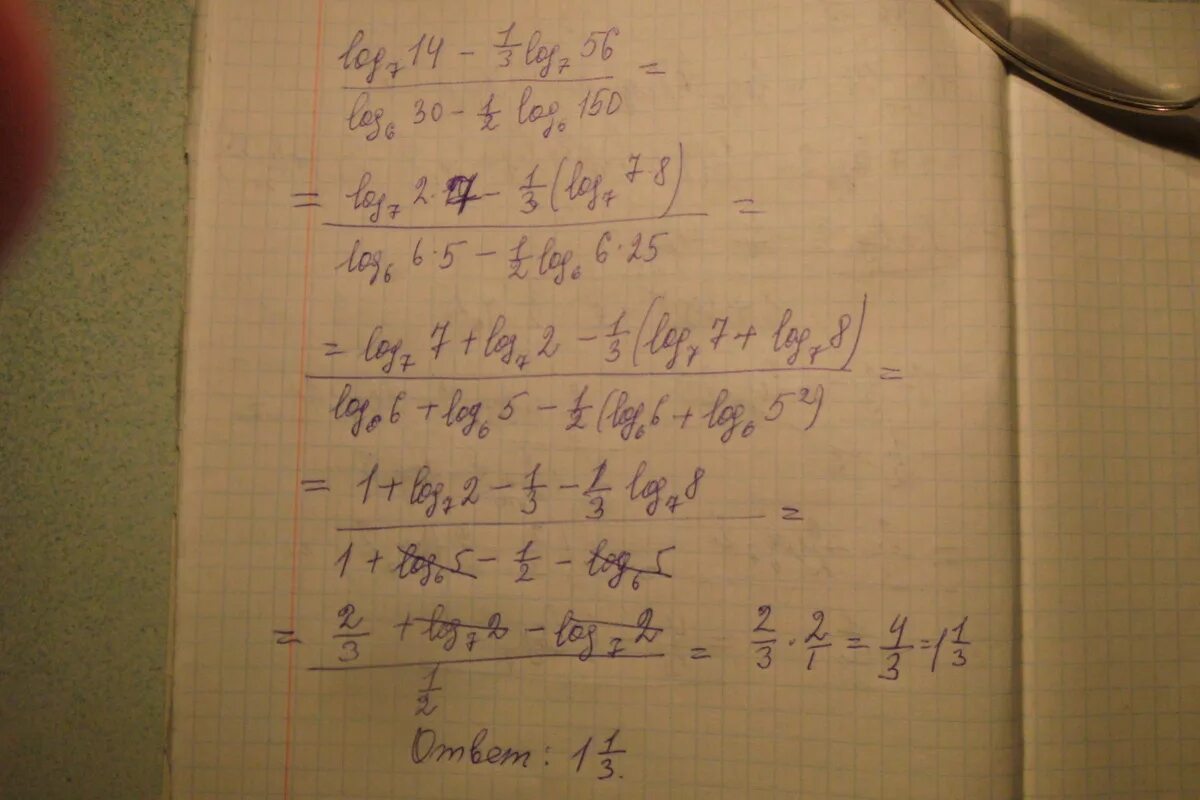 log₇14 − 1/3 log₇56 =
log₆30 − 1/2 log₆150
= log₇2·7 − 1/3(log₇7·8) =
log₆6·5 − 1/2 log₆6·25
= log₇7 + log₇2 − 1/3(log₇7 + log₇8) =
log₆6 + log₆5 − 1/2(log₆6 + log₆5²)
= 1 + log₇2 − 1/3 − 1/3 log₇8 =
1 + log₆5 − 1/2 − log₆5
= 2/3 + log₇2 − log₇2 = 2/3 · 2/1 = 4/3 = 1 1/3
1/2
Ответ: 1 1/3.